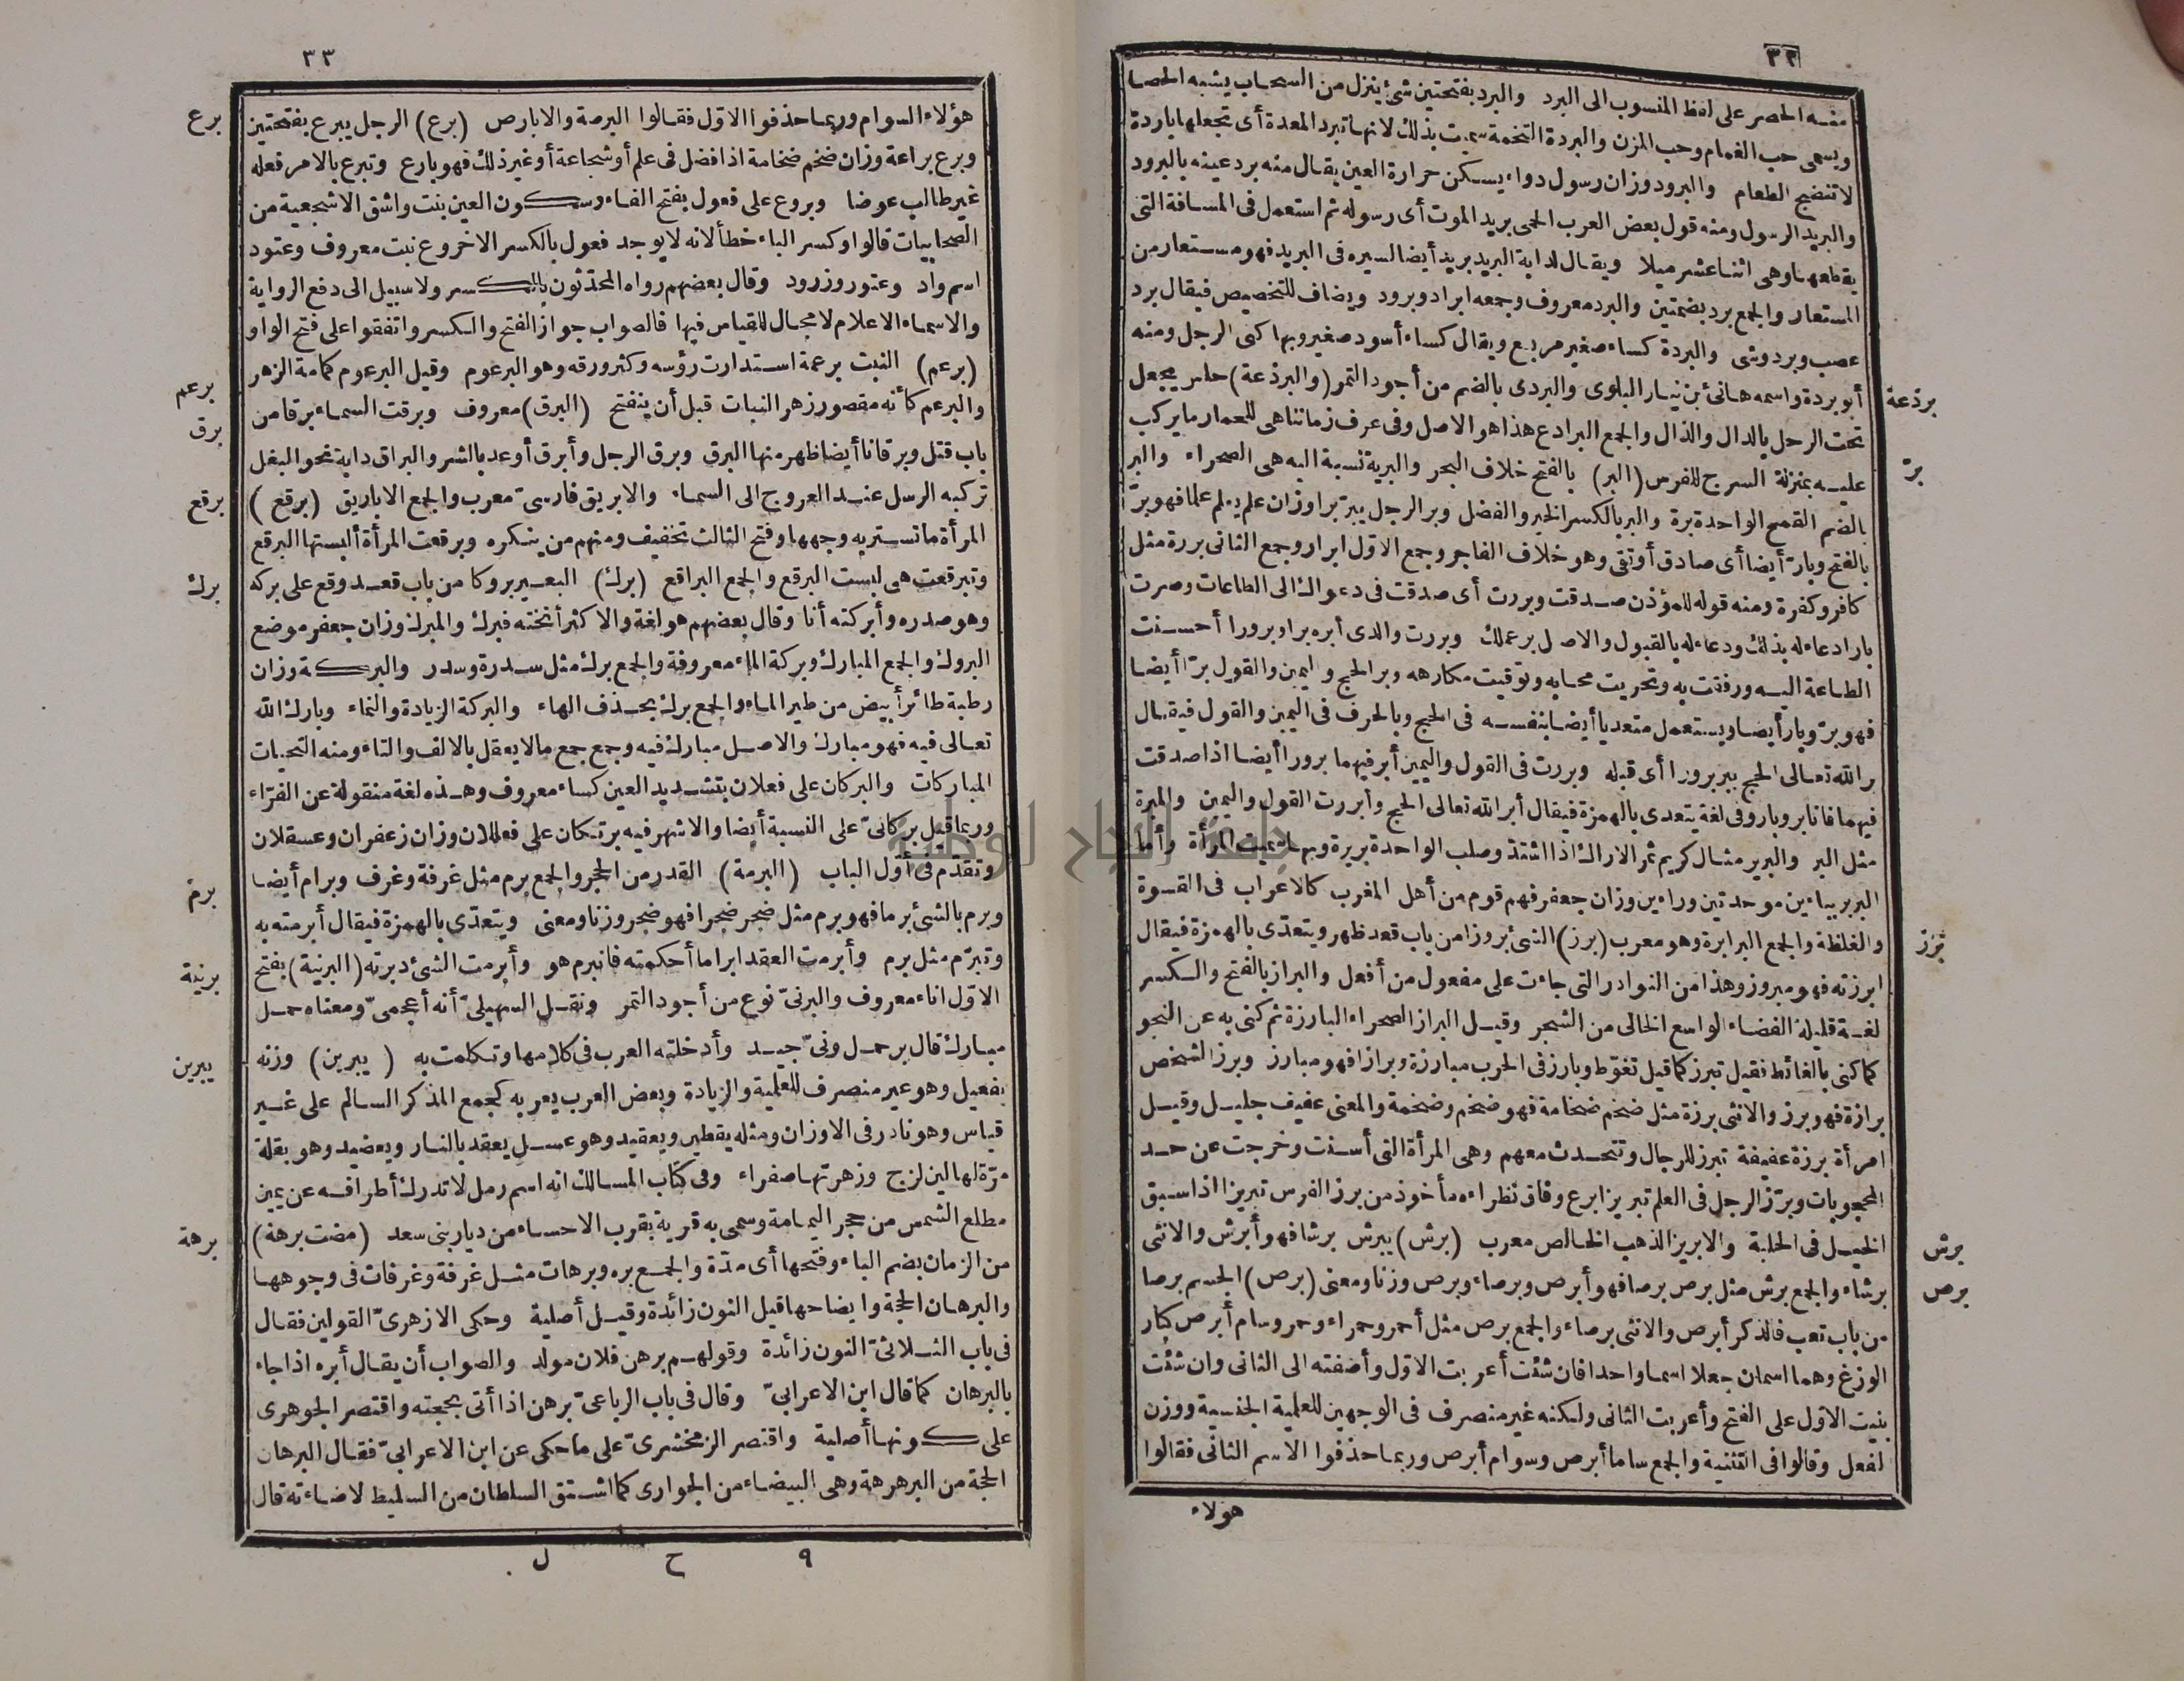 ٣٢
منه الحصر على لفظ المنسوب الى البرد والبرد بفتحتين شئ ينزل من السحاب يشبه الحصا
ويسمى حب الغمام وحب المزن والبردة التخمة سميت بذلك لانها تبرد المعدة أى تجعلها باردة
لا تنضج الطعام والبرود وزان رسول دواء يسكن حرارة العين يقال منه برد عينه بالبرود
والبريد الرسول ومنه قول بعض العرب الحمى بريد الموت أى رسوله ثم استعمل فى المسافة التى
يقطعها وهى اثنا عشر ميلا ويقال لدابة البريد بريد أيضا لسيره فى البريد فهو مستعار من
المستعار والجمع برد بضمتين والبرد معروف وجمعه ابراد وبرود ويضاف للتخصيص فيقال برد
عصب وبرد وشى والبردة كساء صغير مربع ويقال كساء أسود صغير وبها كنى الرجل ومنه
برذعة
أبو بردة واسمه هانئ بن نيار البلوى والبردى بالضم من أجود التمر (والبرذعة) حلس يجعل
تحت الرحل بالدال والذال والجمع البرادع هذا هو الاصل وفى عرف زماننا هى للحمار ما يركب
برّ
عليه بمنزلة السرج للفرس (البر) بالفتح خلاف البحر والبرية نسبة اليه هى الصحراء والبر
بالضم القمح الواحدة برة والبر بالكسر الخير والفضل وبر الرجل يبر برا وزان علم يعلم علما فهو برّ
بالفتح وبارّ أيضا أى صادق أو تقى وهو خلاف الفاجر وجمع الاوّل ابرار وجمع الثانى بررة مثل
كافر وكفرة ومنه قوله للمؤذن صدقت وبررت أى صدقت فى دعواك الى الطاعات وصرت
بارا دعاء له بذلك ودعاء له بالقبول والاصل بر عملك وبررت والدى أبره برا وبرورا أحسنت
الطاعة اليه ورفقت به وتحريت محابه وتوقيت مكارهه وبر الحج واليمين والقول برّا أيضا
فهو برّ وبار أيضا ويستعمل متعديا أيضا بنفسه فى الحج وبالحرف فى اليمين والقول فيقال
بر الله تعالى الحج يبر برورا أى قبله وبررت فى القول واليمين أبر فيهما برورا أيضا اذا صدقت
فيهما فانا بر وبار وفى لغة يتعدى بالهمزة فيقال أبر الله تعالى الحج وأبررت القول واليمين والمبرة
مثل البر والبرير مثال كريم ثمر الاراك اذا اشتد وصلب الواحدة بريرة وبها سميت المرأة وأما
البربر بباءين موحدتين وراءين وزان جعفر فهم قوم من أهل المغرب كالاعراب فى القسوة
برز
والغلظة والجمع البرابرة وهو معرب (برز) الشئ بروزا من باب قعد ظهر ويتعدّى بالهمزة فيقال
ابرزته فهو مبروز وهذا من النوادر التى جاءت على مفعول من أفعل والبراز بالفتح والكسر
لغة قليلة الفضاء الواسع الخالى من الشجر وقيل البراز الصحراء البارزة ثم كنى به عن النجو
كما كنى بالغائط فقيل تبرز كما قيل تغوّط وبارز فى الحرب مبارزة وبرازا فهو مبارز وبرز الشخص
برازة فهو برز والانثى برزة مثل ضخم ضخامة فهو ضخم وضخمة والمعنى عفيف جليل وقيل
امرأة برزة عفيفة تبرز للرجال وتتحدث معهم وهى المرأة التى أسنت وخرجت عن حد
المحجوبات وبرّز الرجل فى العلم تبريزا برع وفاق نظراءه مأخوذ من برز الفرس تبريزا اذا سبق
برش
الخيل فى الحلبة والابريز الذهب الخالص معرب (برش) يبرش برشا فهو أبرش والانثى
برص
برشاء والجمع برش مثل برص برصا فهو أبرص وبرصاء وبرص وزنا ومعنى (برص) الجسم برصا
من باب تعب فالذكر أبرص والانثى برصاء والجمع برص مثل أحمر وحمراء وحمر وسام أبرص كبار
الوزغ وهما اسمان جعلا اسما واحدا فان شئت أعربت الاوّل وأضفته الى الثانى وان شئت
بنيت الاوّل على الفتح وأعربت الثانى ولكنه غير منصرف فى الوجهين للعلمية الجنسية ووزن
الفعل وقالوا فى التثنية والجمع ساما أبرص وسوام أبرص وربما حذفوا الاسم الثانى فقالوا
هولاء
٣٣
برع
هؤلاء السوام وربما حذفوا الاوّل فقالوا البرصة والابارص (برع) الرجل يبرع بفتحتين
وبرع براعة وزان ضخم ضخامة اذا فضل فى علم أو شجاعة أو غير ذلك فهو بارع وتبرع بالامر فعله
غير طالب عوضا وبروع على فعول بفتح الفاء وسكون العين بنت واشق الاشجعية من
الصحابيات قالوا وكسر الباء خطأ لانه لا يوجد فعول بالكسر الا خروع نبت معروف وعتود
اسم واد وعتور وزرود وقال بعضهم رواه المحدّثون بالكسر ولا سبيل الى دفع الرواية
والاسماء الاعلام لا مجال للقياس فيها فالصواب جواز الفتح والكسر واتفقوا على فتح الواو
برعم
(برعم) النبت برعمة استدارت رؤسه وكثر ورقه وهو البرعوم وقيل البرعوم كمامة الزهر
برق
والبرعم كأنه مقصور زهر النبات قبل أن ينفتح (البرق) معروف وبرقت السماء برقا من
باب قتل وبرقانا أيضا ظهر منها البرق وبرق الرجل وأبرق أوعد بالشر والبراق دابة نحو البغل
برقع
تركبه الرسل عند العروج الى السماء والابريق فارسىّ معرب والجمع الاباريق (برقع)
المرأة ما تستتر به وجهها وفتح الثالث تخفيف ومنهم من ينكره وبرقعت المرأة ألبستها البرقع
برك
وتبرقعت هى لبست البرقع والجمع البراقع (برك) البعير بروكا من باب قعد وقع على بركه
وهو صدره وأبركته أنا وقال بعضهم هو لغة والاكثر أنخته فبرك والمبرك وزان جعفر موضع
البروك والجمع المبارك وبركة الماء معروفة والجمع برك مثل سدرة وسدر والبركة وزان
رطبة طائر أبيض من طير الماء والجمع برك بحذف الهاء والبركة الزيادة والنماء وبارك الله
تعالى فيه فهو مبارك والاصل مبارك فيه وجمع جمع ما لا يعقل بالالف والتاء ومنه التحيات
المباركات والبركان على فعلان بتشديد العين كساء معروف وهذه لغة منقولة عن الفرّاء
وربما قيل بركانىّ على النسبة أيضا والاشهر فيه برنكان على فعللان وزان زعفران وعسقلان
برم
وتقدّم فى أوّل الباب (البرمة) القدر من الحجر والجمع برم مثل غرفة وغرف وبرام أيضا
وبرم بالشئ برما فهو برم مثل ضجر ضجرا فهو ضجر وزنا ومعنى ويتعدّى بالهمزة فيقال أبرمته به
برنية
وتبرّم مثل برم وأبرمت العقد ابراما أحكمته فانبرم هو وأبرمت الشئ دبرته (البرنية) بفتح
الاوّل اناء معروف والبرنىّ نوع من أجود التمر ونقل السهيلىّ أنه أعجمىّ ومعناه حمل
يبرين
مبارك قال بر حمل ونىّ جيد وأدخلته العرب فى كلامها وتكلمت به (يبرين) وزنه
يفعيل وهو غير منصرف للعلمية والزيادة وبعض العرب يعربه كجمع المذكر السالم على غير
قياس وهو نادر فى الاوزان ومثله يقطين ويعقيد وهو عسل يعقد بالنار ويعضيد وهو بقلة
مرّة لها لبن لزج وزهرتها صفراء وفى كتاب المسالك انه اسم رمل لا تدرك أطرافه عن يمين
برهة
مطلع الشمس من حجر اليمامة وسمى به قرية بقرب الاحساء من ديار بنى سعد (مضت برهة)
من الزمان بضم الباء وفتحها أى مدّة والجمع بره وبرهات مثل غرفة وغرفات فى وجوهها
والبرهان الحجة وايضاحها قيل النون زائدة وقيل أصلية وحكى الازهرىّ القولين فقال
فى باب الثلاثىّ النون زائدة وقولهم برهن فلان مولد والصواب أن يقال أبره اذا جاء
بالبرهان كما قال ابن الاعرابىّ وقال فى باب الرباعىّ برهن اذا أتى بحجته واقتصر الجوهرى
على كونها أصلية واقتصر الزمخشرىّ على ما حكى عن ابن الاعرابىّ فقال البرهان
الحجة من البرهرهة وهى البيضاء من الجوارى كما اشتق السلطان من السليط لاضاءته قال
٩ ح ل